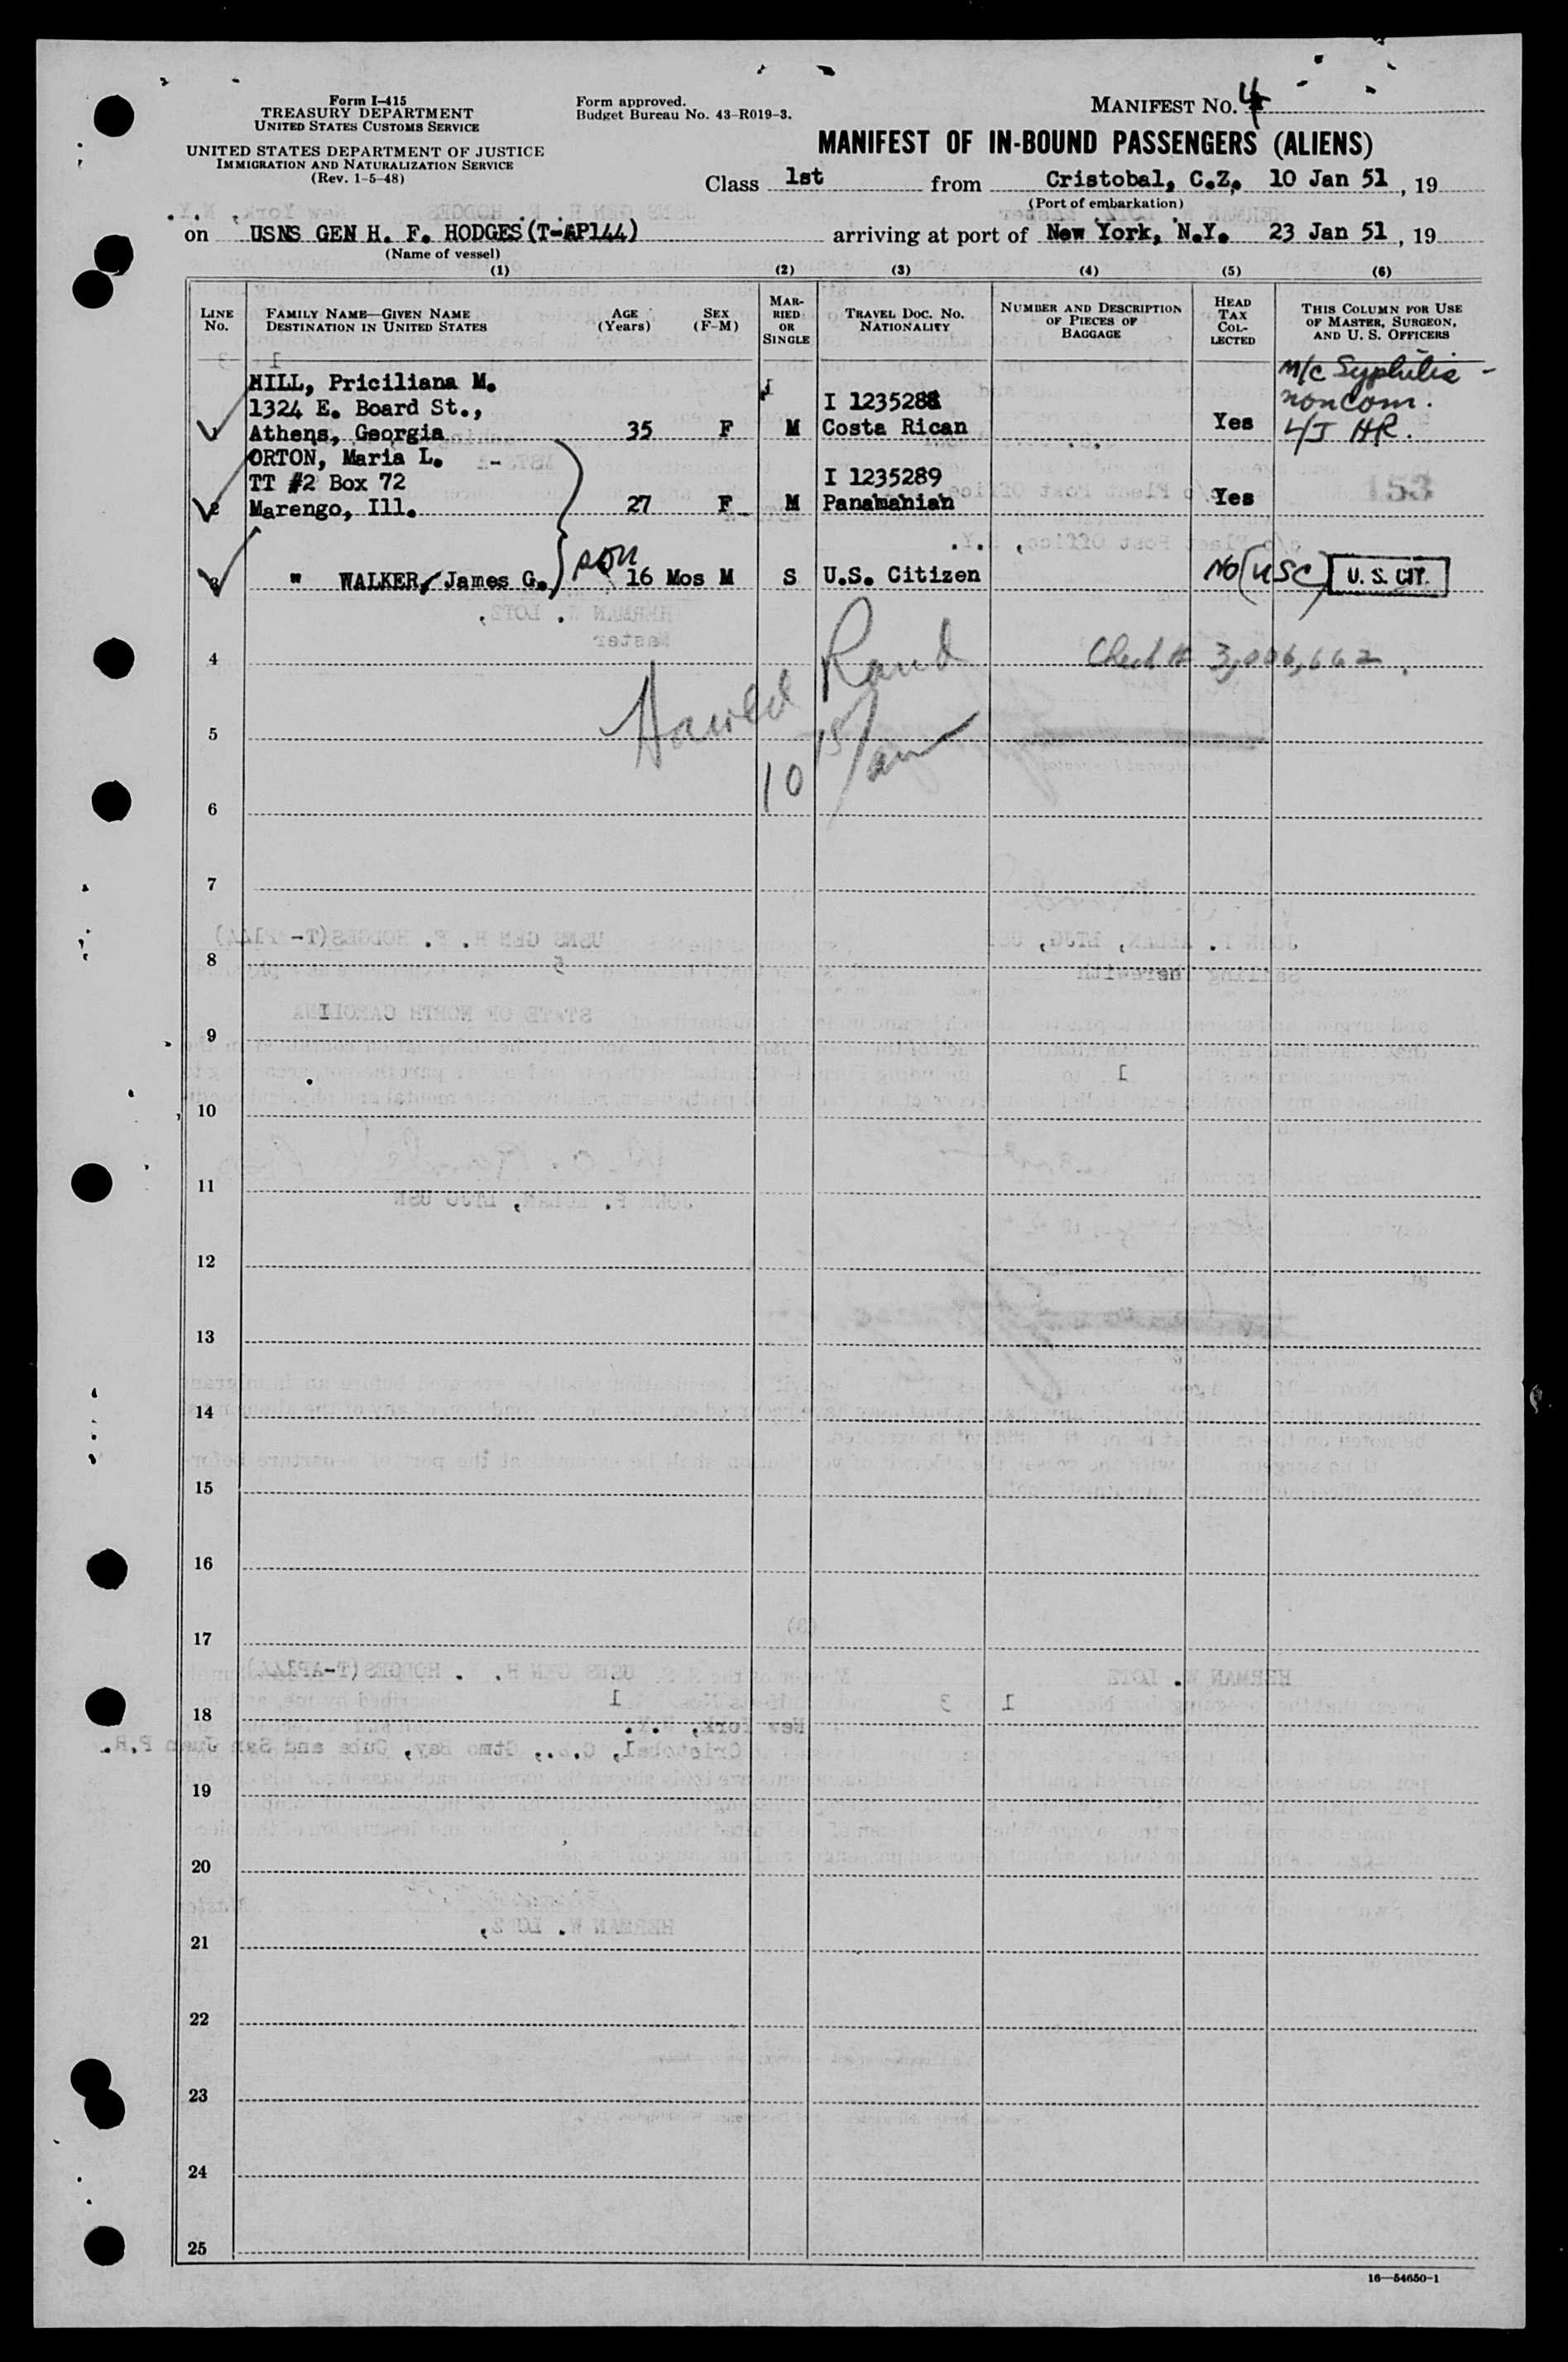 Form I-415
TREASURY DEPARTMENT
UNITED STATES CUSTOMS SERVICE
UNITED STATES DEPARTMENT OF JUSTICE
IMMIGRATION AND NATURALIZATION SERVICE
(Rev. 1-5-48)
Form approved.
Budget Bureau No. 43-R019-3.
MANIFEST NO. 4
MANIFEST OF IN-BOUND PASSENGERS (ALIENS)
Class 1st from Cristobal, C.Z. 10 Jan 51, 19
(Port of embarkation)
on USNS GEN H. F. HODGES(T-AP144) arriving at port of New York, N.Y. 23 Jan 51, 19
(Name of vessel)
(1) (2) (3) (4) (5) (6)
LINE No. FAMILY NAME—GIVEN NAME DESTINATION IN UNITED STATES AGE (Years) SEX (F-M) MARRIED OR SINGLE TRAVEL DOC. NO. NATIONALITY NUMBER AND DESCRIPTION OF PIECES OF BAGGAGE HEAD TAX COLLECTED THIS COLUMN FOR USE OF MASTER, SURGEON, AND U. S. OFFICERS
HILL, Priciliana M. M/C Syphilis -
1324 E. Board St., I 1235288 noncom.
Athens, Georgia 35 F M Costa Rican Yes
ORTON, Maria L.
TT #2 Box 72 I 1235289
2 Marengo, Ill. 27 F M Panamanian Yes 153
3 " WALKER, James G. son 16 Mos M S U.S. Citizen No (USC) U. S. CIT.
4 Check # 3,006,662.
Harold Rand
5
10 15/am
6
7
8
9
10
11
12
13
14
15
16
17
18
19
20
21
22
23
24
25
16—54650-1